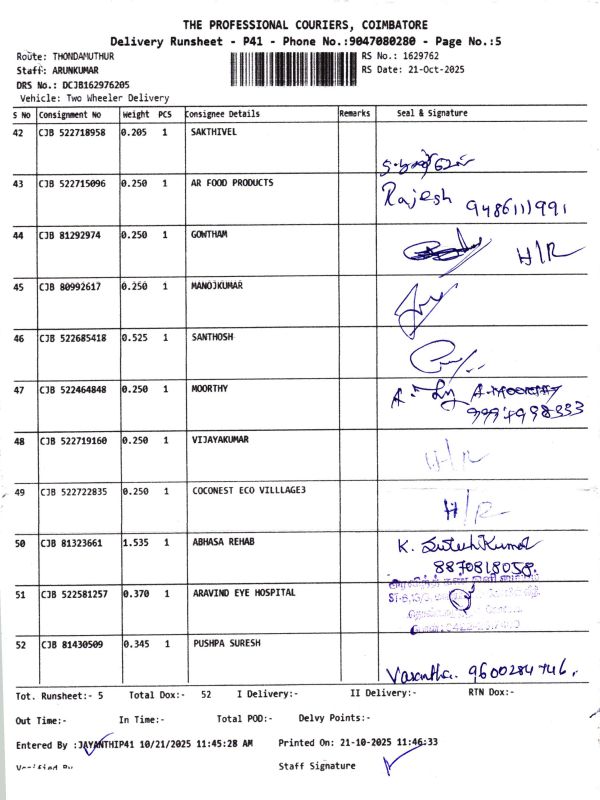 THE PROFESSIONAL COURIERS, COIMBATORE
Delivery Runsheet - P41 - Phone No.:9047080280 - Page No.:5
Route: THONDAMUTHUR RS No.: 1629762
Staff: ARUNKUMAR RS Date: 21-Oct-2025
DRS No.: DCJB162976205
Vehicle: Two Wheeler Delivery
S No Consignment No Weight PCS Consignee Details Remarks Seal & Signature
42 CJB 522718958 0.205 1 SAKTHIVEL
43 CJB 522715096 0.250 1 AR FOOD PRODUCTS Rajesh 9486111991
44 CJB 81292974 0.250 1 GOWTHAM H/R
45 CJB 80992617 0.250 1 MANOJKUMAR
46 CJB 522685418 0.525 1 SANTHOSH
47 CJB 522464848 0.250 1 MOORTHY A. A.MOORTHY
48 CJB 522719160 0.250 1 VIJAYAKUMAR H/R
49 CJB 522722835 0.250 1 COCONEST ECO VILLLAGE3 H/R
50 CJB 81323661 1.535 1 ABHASA REHAB K. SutishKumar
8870818058.
51 CJB 522581257 0.370 1 ARAVIND EYE HOSPITAL
52 CJB 81430509 0.345 1 PUSHPA SURESH Vasantha. 9600284746.
Tot. Runsheet:- 5 Total Dox:- 52 I Delivery:- II Delivery:- RTN Dox:-
Out Time:- In Time:- Total POD:- Delvy Points:-
Entered By :JAYANTHIP41 10/21/2025 11:45:28 AM Printed On: 21-10-2025 11:46:33
Staff Signature